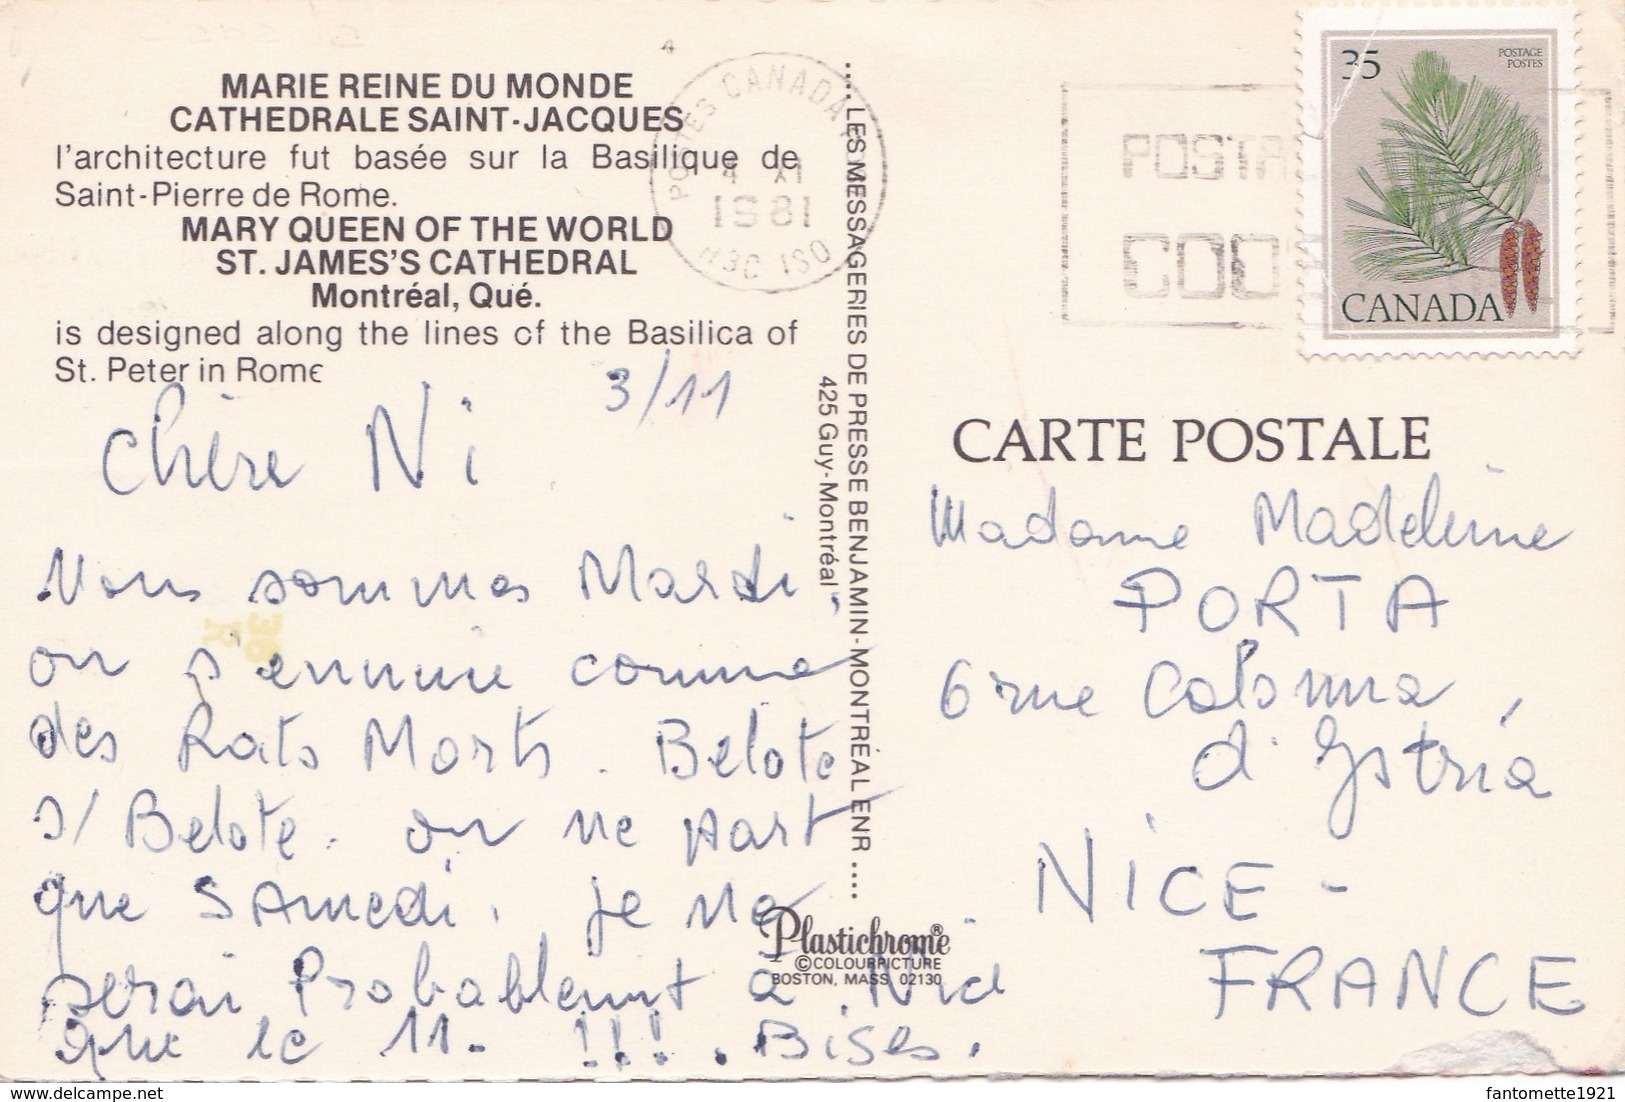 MARIE REINE DU MONDE
CATHEDRALE SAINT-JACQUES
l'architecture fut basée sur la Basilique de
Saint-Pierre de Rome.
MARY QUEEN OF THE WORLD
ST. JAMES'S CATHEDRAL
Montréal, Qué.
is designed along the lines of the Basilica of
St. Peter in Rome
3/11
Chère Ni
Nous sommes Mardi,
on s'ennuie comme
des Rats Morts. Belote
s/ Belote. on ne part
que SAmedi. je ne
serai Probablement à Nice
que le 11. !!!. Bises.
....LES MESSAGERIES DE PRESSE BENJAMIN-MONTRÉAL ENR....
425 Guy-Montréal
Plastichrome®
©COLOURPICTURE
BOSTON, MASS. 02130
POSTES CANADA
4 XI
1981
H3C 1S0
POSTA
COD
35
POSTAGE
POSTES
CANADA
CARTE POSTALE
Madame Madeleine
PORTA
6 rue Colonna,
d'Istria
NICE -
FRANCE
fantomette1921